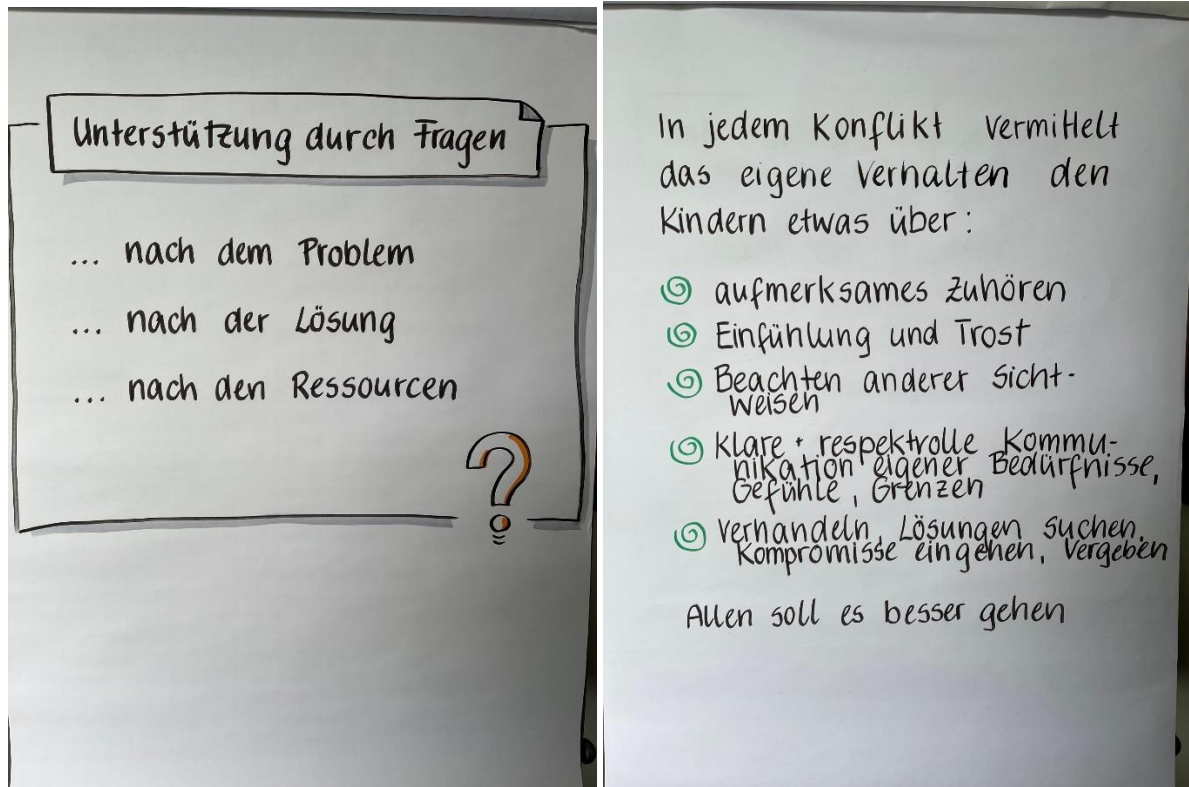 Unterstützung durch Fragen
... nach dem Problem
... nach der Lösung
... nach den Ressourcen
?
In jedem Konflikt vermittelt
das eigene Verhalten den
Kindern etwas über:
aufmerksames Zuhören
Einfühlung und Trost
Beachten anderer Sicht-
weisen
Klare + respektvolle Kommu-
nikation eigener Bedürfnisse,
Gefühle, Grenzen
Verhandeln, Lösungen suchen,
Kompromisse eingehen, Vergeben
Allen soll es besser gehen